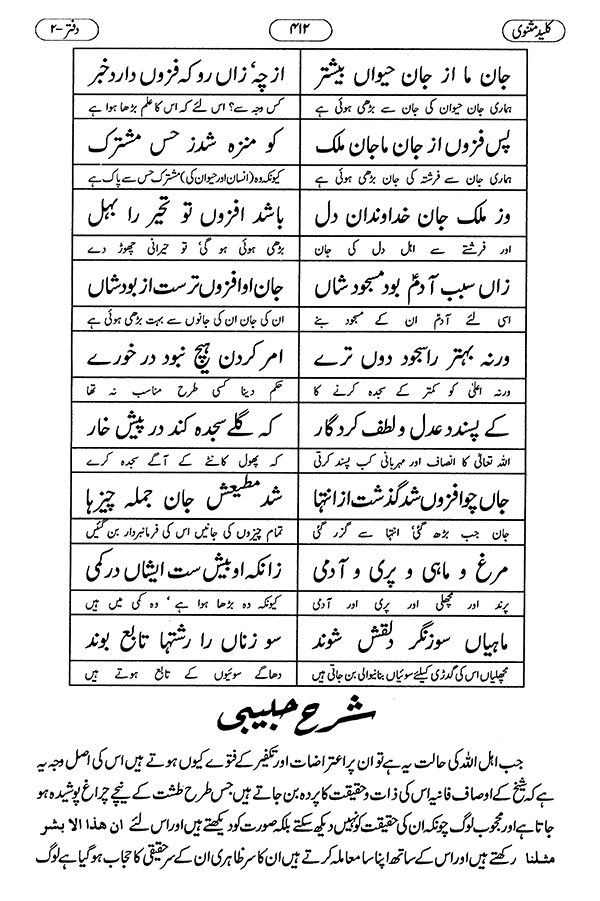 کلید مثنوی ۴۱۲ دفتر-۲
جان ما از جان حیواں بیشتر از چہ؟ زاں رو کہ فزوں دارد خبر
ہماری جان حیوان کی جان سے بڑھی ہوئی ہے کس وجہ سے؟ اس لئے کہ اس کا علم بڑھا ہوا ہے
پس فزوں از جان ما جان ملک کو منزہ شد ز حس مشترک
ہماری جان سے فرشتہ کی جان بڑھی ہوئی ہے کیونکہ وہ (انسان اور حیوان کی) مشترک حس سے پاک ہے
وز ملک جان خداوندان دل باشد افزوں تو تحیر را بہل
اور فرشتے سے اہل دل کی جان بڑھی ہوئی ہو گی تو حیرانی چھوڑ دے
زاں سبب آدمؑ بود مسجود شاں جان او افزوں ترست از بود شاں
اسی لئے آدمؑ ان کے مسجود بنے ان کی جان ان کی جانوں سے بہت بڑھی ہوئی ہے
ورنہ بہتر را سجود دوں ترے امر کردن ہیچ نبود در خورے
ورنہ اعلیٰ کو کمتر کے سجدہ کرنے کا حکم دینا کسی طرح مناسب نہ تھا
کے پسندد عدل و لطف کردگار کہ گلے سجدہ کند در پیش خار
اللہ تعالیٰ کا انصاف اور مہربانی کب پسند کرتی کہ پھول کانٹے کے آگے سجدہ کرے
جاں چو افزوں شد گذشت از انتہا شد مطیعش جان جملہ چیزہا
جان جب بڑھ گئی انتہا سے گزر گئی تمام چیزوں کی جانیں اس کی فرمانبردار بن گئیں
مرغ و ماہی و پری و آدمی زانکہ او بیش ست ایشاں در کمی
پرند اور مچھلی اور پری اور آدمی کیونکہ وہ بڑھا ہوا ہے، وہ کمی میں ہیں
ماہیاں سوزنگر دلقش شوند سوزناں را رشتہا تابع بوند
مچھلیاں اس کی گدڑی کیلئے سوئیاں بنانیوالی بن جاتی ہیں دھاگے سوئیوں کے تابع ہوتے ہیں
شرح حبیبی
جب اہل اللہ کی حالت یہ ہے تو ان پر اعتراضات اور تکفیر کے فتوے کیوں ہوتے ہیں اس کی اصل وجہ یہ
ہے کہ شیخ کے اوصاف فانیہ اس کی ذات و حقیقت کا پردہ بن جاتے ہیں جس طرح طشت کے نیچے چراغ پوشیدہ ہو
جاتا ہے اور محجوب لوگ چونکہ ان کی حقیقت کو نہیں دیکھ سکتے بلکہ صورت کو دیکھتے ہیں اور اس لئے ان ھذا الا بشر
مثلنا رکھتے ہیں اور اس کے ساتھ اپنا سا معاملہ کرتے ہیں ان کا سر ظاہری ان کے سر حقیقی کا حجاب ہو گیا ہے لوگ